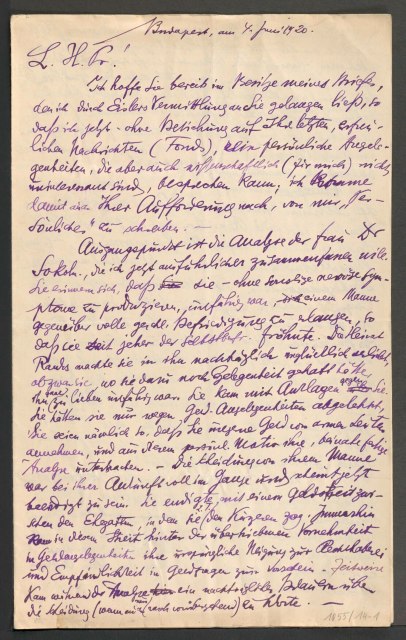 Budapest, am 4. Juni 1920.
L. H. Pr!
Ich hoffe Sie bereits im Besitze meines Briefes,
den ich durch Eislers Vermittlung an Sie gelangen ließ, so
daß ich jetzt - ohne Beziehung auf Ihre letzten, erfreu-
lichen Nachrichten (Fonds), persönliche Angele-
genheiten, die aber auch wissenschaftlich (für mich) nicht
uninteressant sind, besprechen kann; ich komme
damit Ihrer Aufforderung nach, von mir "Per-
sönliches" zu schreiben. -
Ausgangspunkt ist die Analyse der Frau Dr
Sokoln., die ich jetzt ausführlicher zusammenfassen will.
Sie erinnern sich, daß sie - ohne sonstige nervöse Sym-
ptome zu produzieren, unfähig war, einem Manne
gegenüber volle geschl. Befriedigung zu erlangen, so
daß sie seit jeher der Selbstbefr. fröhnte. Die Heimat
Ranks machte sie in ihm nachträglich unglücklich verliebt,
obzwar sie, wo sie dazu noch Gelegenheit gehabt hätte,
ihn zu lieben unfähig war. Sie kam mit Anklagen gegen Sie.
Sie hätten sie nur wegen Geld Angelegenheiten abgelehnt,
Sie seien nämlich so, daß Sie ungerne Geld von armen Leuten
annehmen, und aus diesem Motiv ihre, beinahe fertige
Analyse unterbrachen. - Die Scheidung von ihrem Manne
war bei ihrer Ankunft voll im Gange und scheint jetzt
beendigt zu sein. Sie endigte mit einem Geldstreit zwi-
schen den Ehegatten, in dem sie den Kürzeren zog. Immerhin
kam in diesem Streit hinter der übertriebenen Vornehmheit
in Geldangelegenheiten ihre ursprüngliche Neigung zur
und Empfindlichkeit in Geldfragen zum Vorschein. - Zeitweise
kam während der Analyse ein nachträgliches Bedauern über
die Scheidung (wenn auch nur vorübergehend) zu Worte. -
1855/14-1